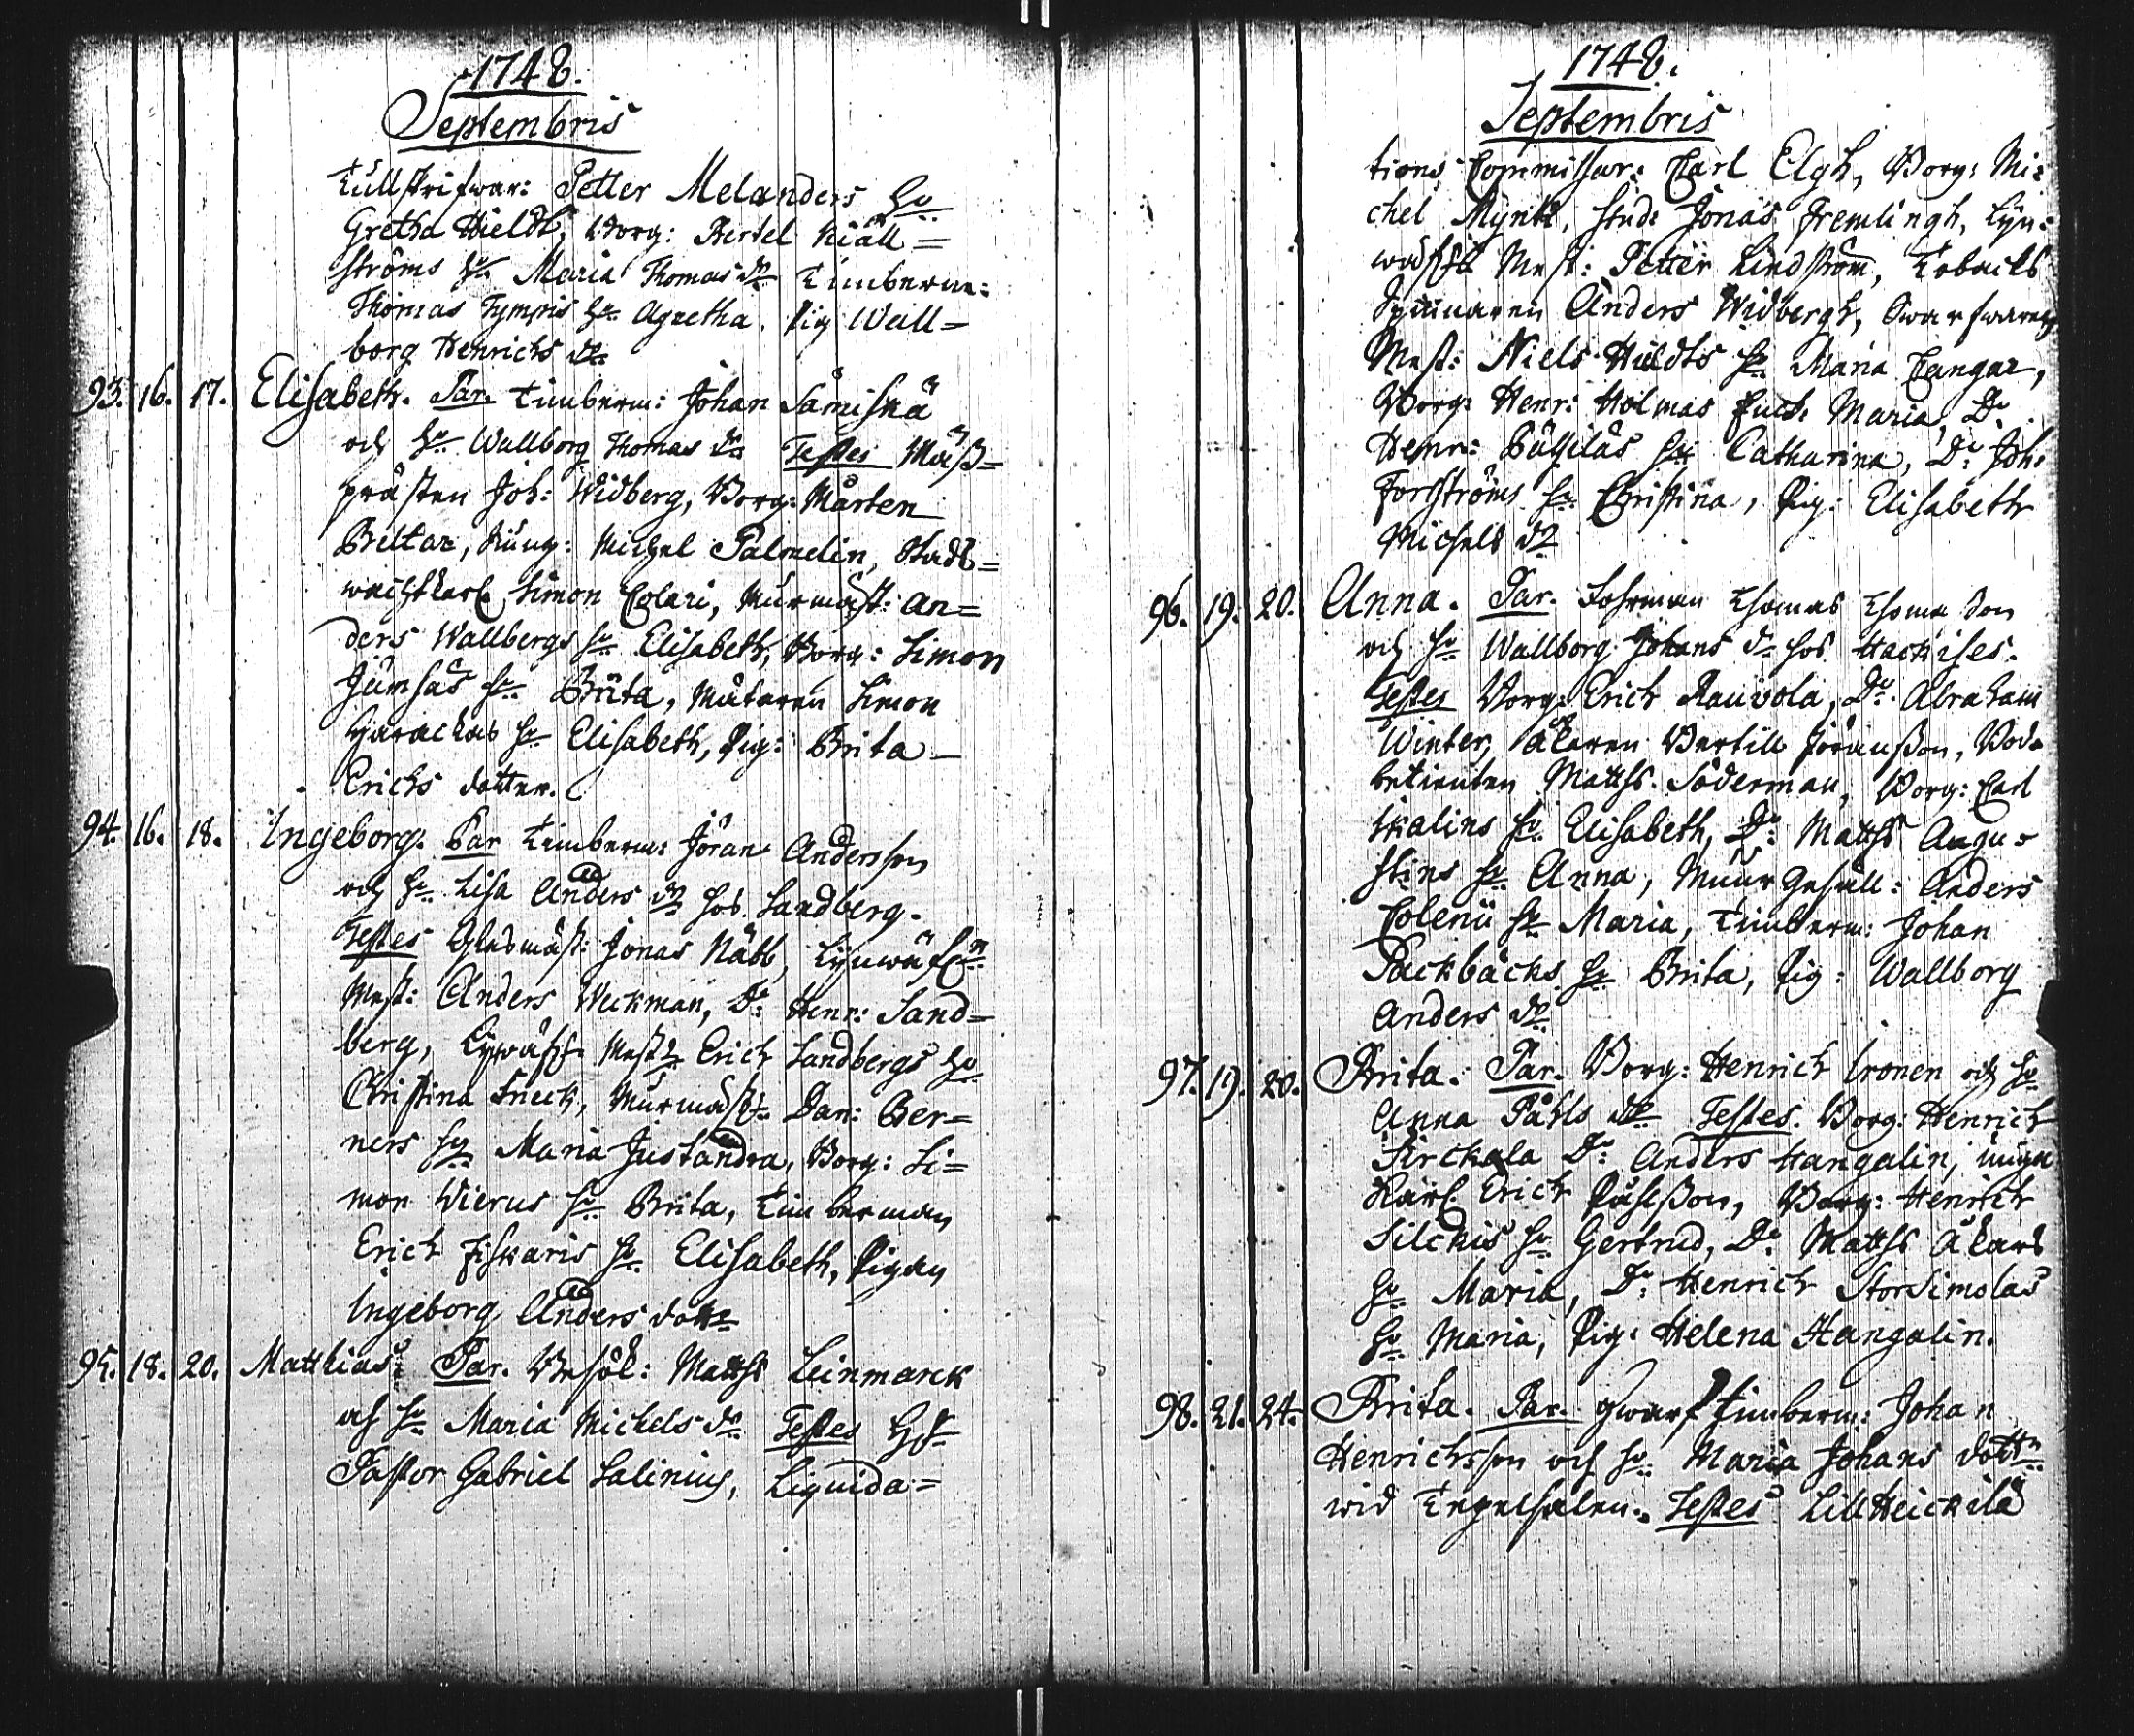 1748.
Septembris
Tullskrifwar: Petter Melanders Hu
Gretha Hieldt, Borg: Bertel Kiäll=
ströms hu Maria Thomas dr Timberm:
Thomas Tympis hu Agnetha. Pig Wall=
borg Henrichs dr
93. 16. 17. Elisabeth. Par. Timberm: Johan Säniskä
och hu Wallborg Thomas dr Testes Mäss=
prästen Joh: Widberg, Borg: Mårten
Beltar, Kung: Michel Palmelin, Stads=
wachtkarl Simon Colari, Murmäst: An=
ders Wallbergs hu Elisabeth, Borg: Simon
Jumsas hu Brita, Mätaren Simon
hu Elisabeth, Pig: Brita
Erichs dotter.
94. 16. 18. Ingeborg. Par Timberm: Jöran Andersson
och hu Lisa Anders dr hos Sandberg.
Testes Glasmäst: Jonas Näbb, Lijnwäf
Mest: Anders Weckman, Do Henr: Sand=
berg, Lijnwäf Mest Erich Sandbergs hu
Christina Sneck, Murmäst Dan: Ber=
ners hu Maria Justandra, Borg: Si=
mon Wierus hu Brita, Timberman
Erich Fiskaris hu Elisabeth, Pigan
Ingeborg Anders dotter
95. 18. 20. Matthias Par. Besök: Matths Leinmarck
och hu Maria Michels dr Testes
Pastor Gabriel Salinius, Liquida=
1748.
Septembris
tions Commissar: Carl Elgh, Borg: Mi=
chel Mynti, stud: Jonas Fremlingh, Lijn=
Mest: Petter Lindström, Tobacks
Spinnaren Anders Widbergh, Swarfwaren
Mest: Niels Huldts hu Maria Cangar,
Borg: Henr: Holmas Enck: Maria, Do
Henr: hu Catharina, Do Joh:
Forsströms hu Christina, Pig: Elisabeth
Michels dr
96. 19. 20. Anna. Par. Fohrman Thomas Thomason
och hu Wallborg Johans dr hos Hackises.
Testes Borg: Erich Rauvola, Do Abraham
Winter, Åkaren Bertill Jöransson, Bods
betienten Matths Söderman, Borg: Carl
Walins hu Elisabeth, Do Matths Augu=
stins hu Anna, Muur Gesäll: Anders
Coleny hu Maria, Timberm: Johan
Packbacks hu Brita, Pig: Wallborg
Anders dr
97. 19. 20. Brita. Par. Borg: Henrich Ironen och hu
Anna Påhls dr Testes. Borg: Henrich
Sirckala Do Anders Hangalin, unga
Karl Erich Påhlsson, Borg: Henrich
Silckis hu Gertrud, Do Matths Åkars
hu Maria, Do Henrich Storsimolas
hu Maria, Pig: Helena Hangalin.
98. 21. 24. Brita. Par. Qwarf timberm: Johan
Henrichsson och hu Maria Johans dottr
wid Tegelsalen. Testes Lill Heickilä